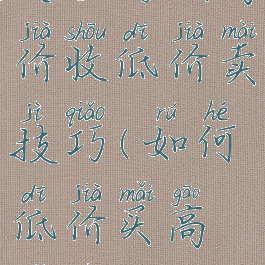 jià shōu dī jià mài
价收低价卖
jì qiǎo rú hé
技巧(如何
dī jià mǎi gāo
低价买高